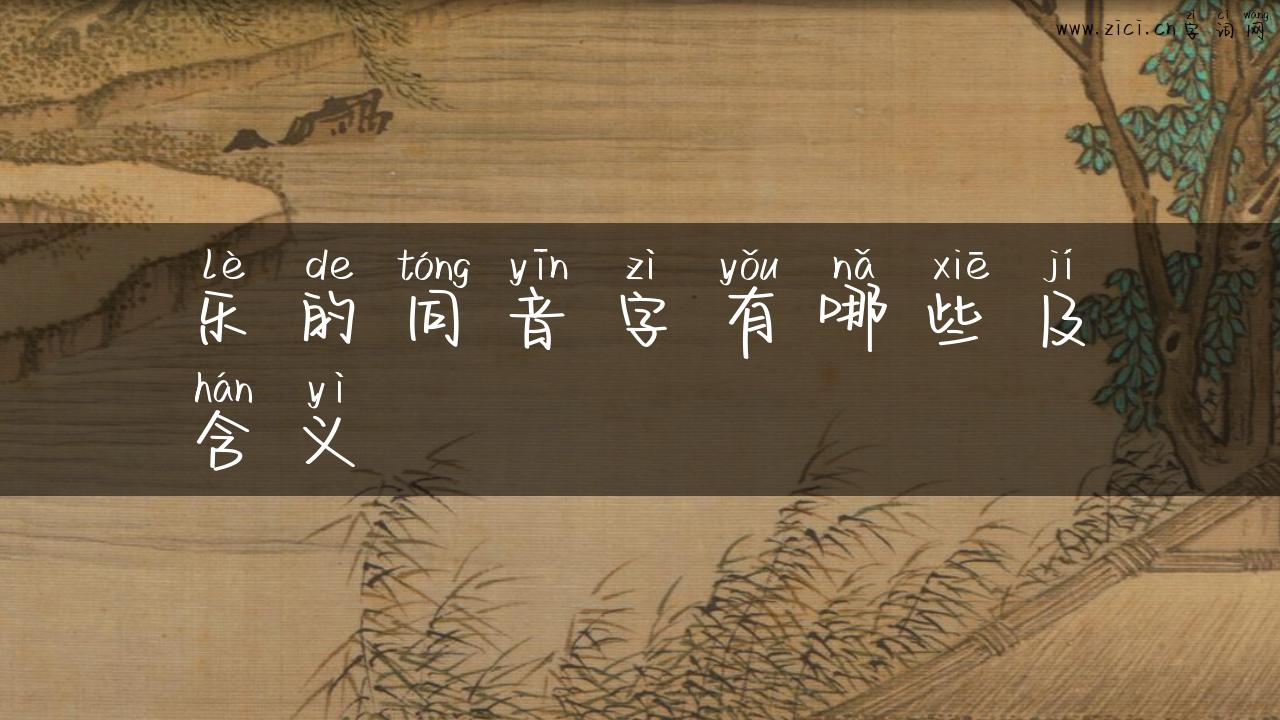 zì cí wǎng
www.zici.cn字词网
lè de tóng yīn zì yǒu nǎ xiē jí
乐的同音字有哪些及
hán yì
含义